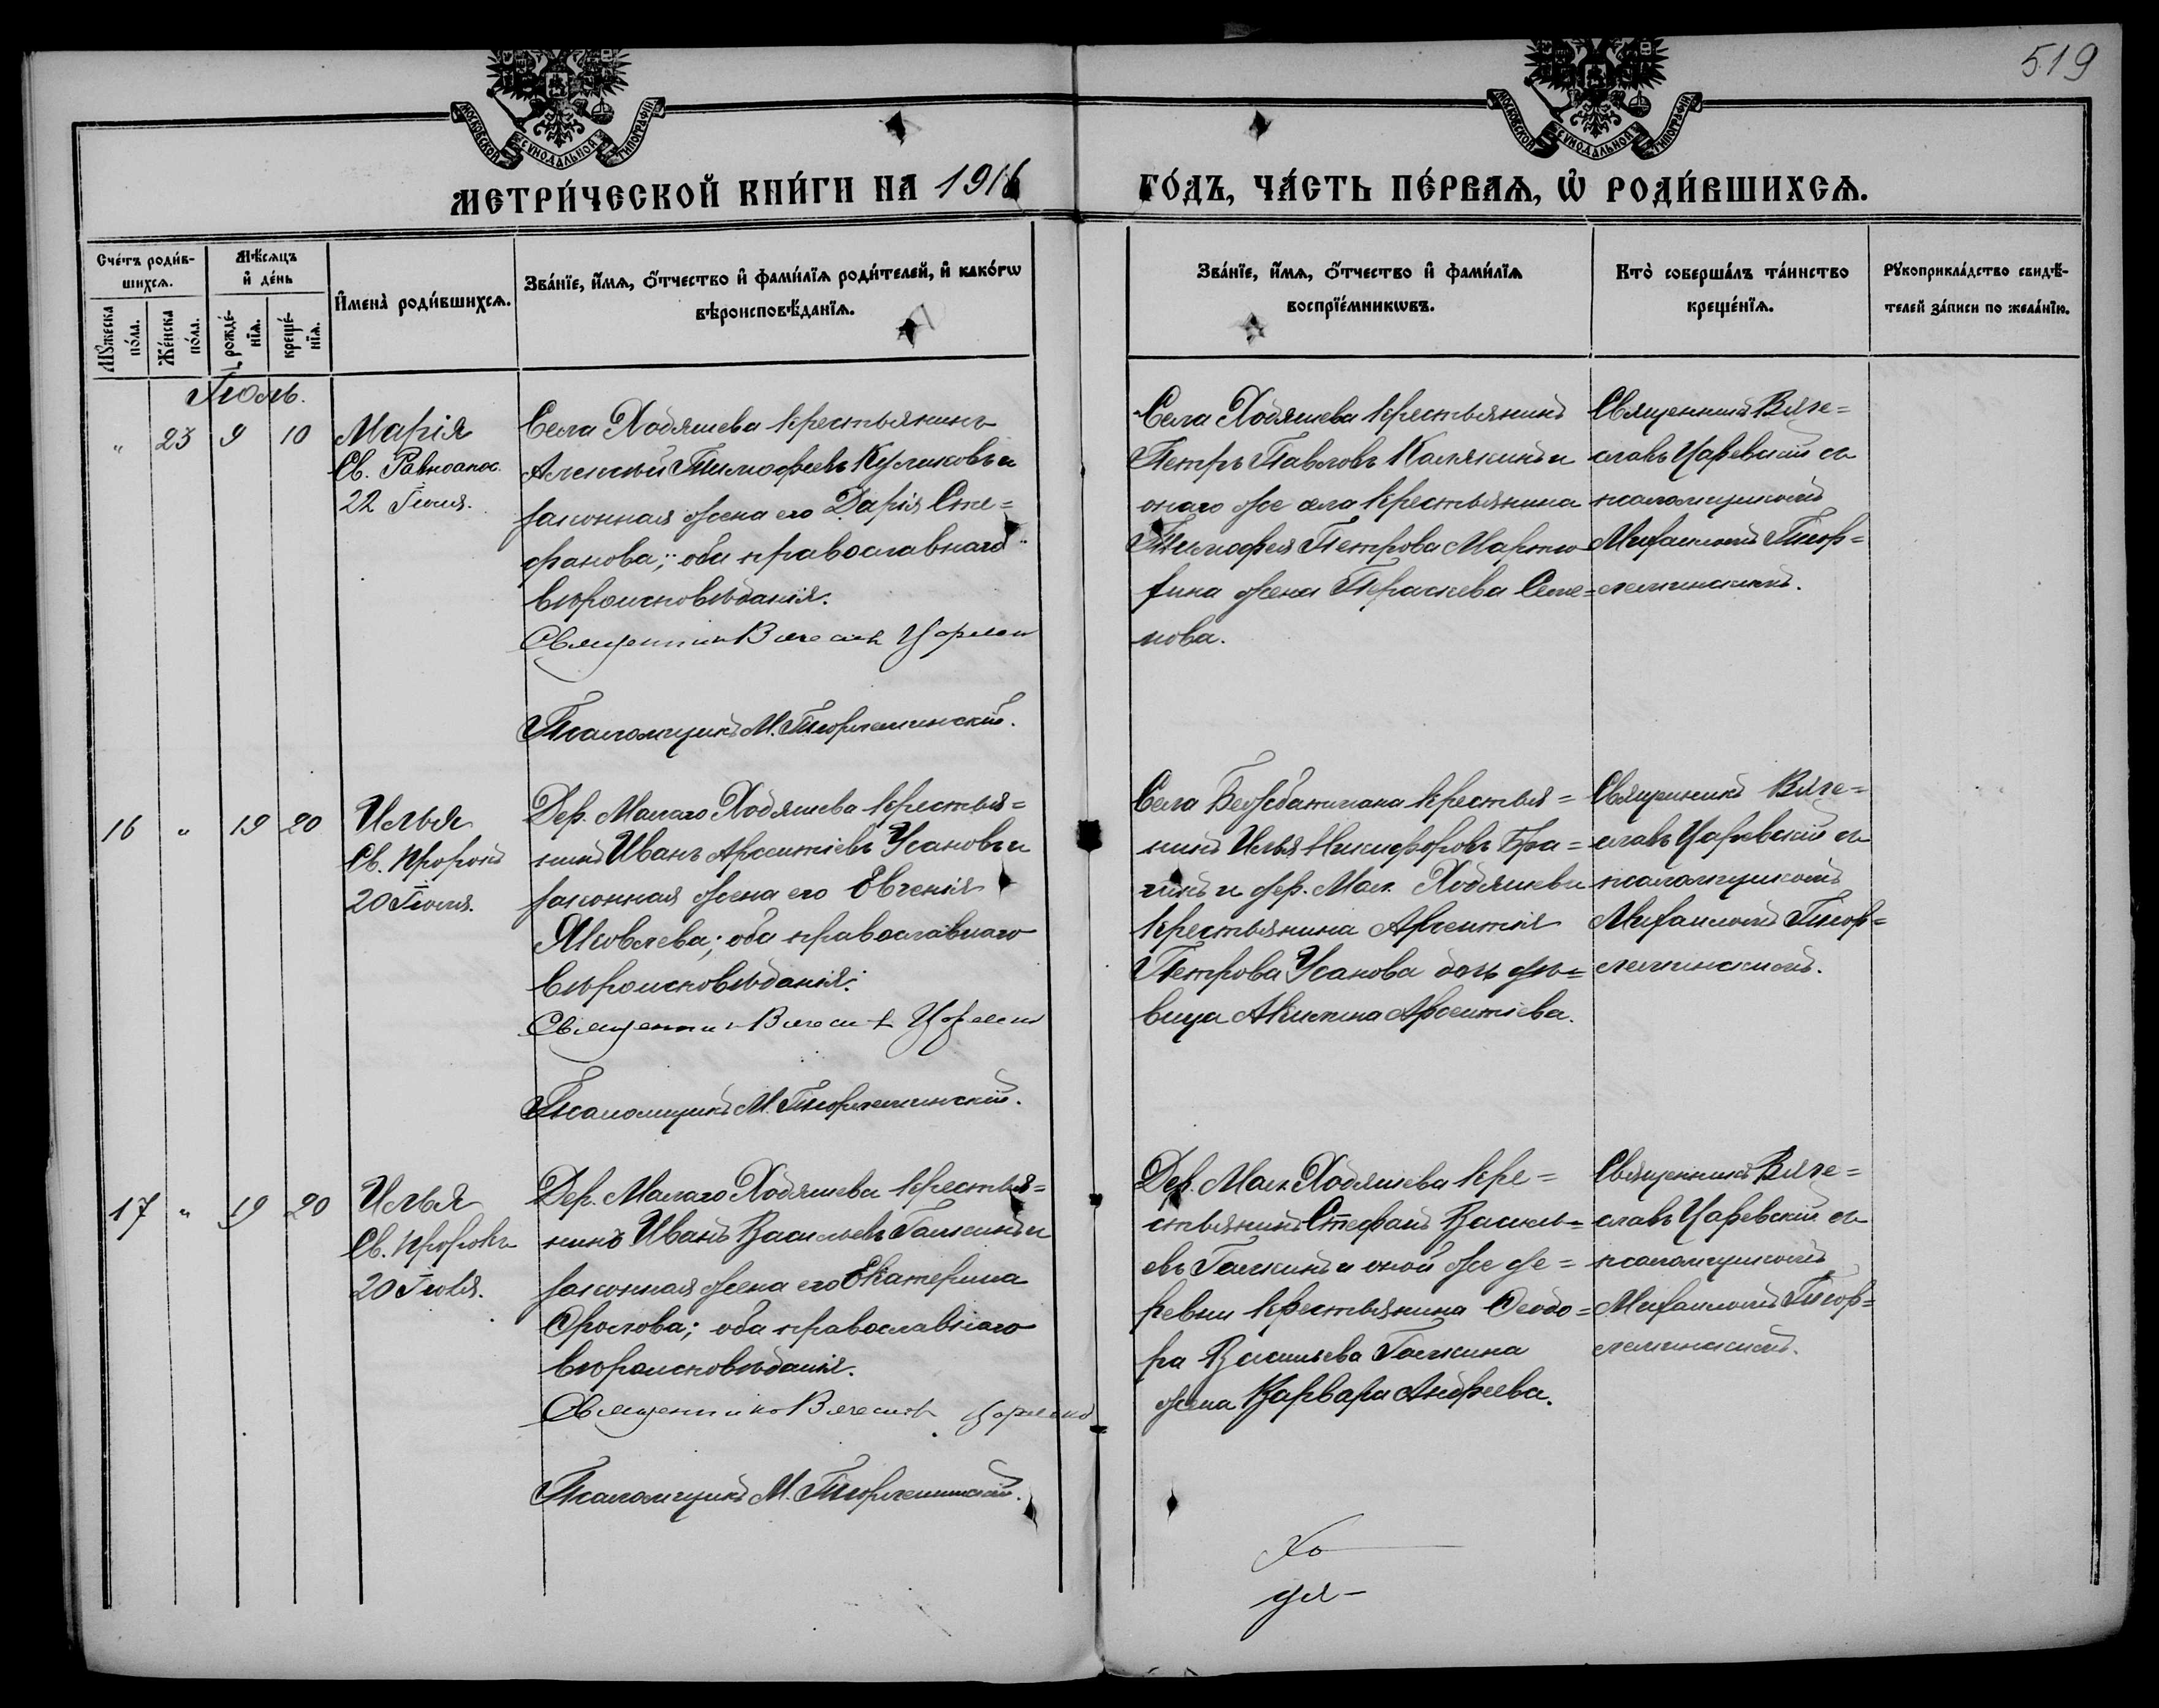 519
МОСКОВСКОЙ СѴНОДАЛЬНОЙ ТИПОГРАФІИ
МОСКОВСКОЙ СѴНОДАЛЬНОЙ ТИПОГРАФІИ
МЕТРИ́ЧЕСКОЙ КНИ́ГИ НА 1916 ГО́ДЪ, ЧА́СТЬ ПЕ́РВАѦ, Ѡ҆ РОДИ́ВШИХСѦ.
Сче́тъ роди́в-
шихсѧ.
Мꙋжеска по́ла.
Же́нска по́ла.
Мѣ́сѧцъ
и҆ де́нь
рожде́-
нїѧ.
креще́-
нїѧ.
И҆мена̀ роди́вшихсѧ.
Зва́нїе, и҆́мѧ, ѻ҆́тчество и҆ фами́лїѧ роди́телей, и҆ како́гѡ
вѣроисповѣ́данїѧ.
Зва́нїе, и҆́мѧ, ѻ҆́тчество и҆ фами́лїѧ
воспрїе́мникѡвъ.
Кто̀ соверша́лъ та́инство
креще́нїѧ.
Рꙋкоприкла́дство свидѣ́-
телей за́писи по жела́нїю.
Іюль.
" 23 9 10
Марія
Св. Равноапос.
22 Іюля.
Села Ходяшева крестьянинъ
Алексѣй Тимофеевъ и
законная жена его Дарія Сте=
фанова; оба православнаго
вѣроисповѣданія.
Священникъ Вячеславъ Царевскій
Псаломщикъ М.
Села Ходяшева крестьянинъ
Петръ Павловъ и
онаго же села крестьянина
Тимофея Петрова
жена Параскева Семе=
нова.
Священникъ Вяче=
славъ Царевскій съ
псаломщикомъ
Михаиломъ
16 " 19 20
Илья
Св. Пророкъ
20 Іюля.
Дер. Малаго Ходяшева крестья=
нинъ Иванъ Арсентіевъ Усановъ и
законная жена его Евгенія
Яковлева; оба православнаго
вѣроисповѣданія.
Священникъ Вячеславъ Царевскій
Псаломщикъ М.
Села крестья=
нинъ Илья Никифоровъ
и дер. Мал. Ходяшева
крестьянина Арсентія
Петрова Усанова дочь дѣ=
вица Акилина Арсентіева.
Священникъ Вяче=
славъ Царевскій съ
псаломщикомъ
Михаиломъ
17 " 19 20
Илья
Св. Пророкъ
20 Іюля.
Дер. Малаго Ходяшева крестья=
нинъ Иванъ Васильевъ Галкинъ и
законная жена его Екатерина
Фролова; оба православнаго
вѣроисповѣданія.
Священникъ Вячеславъ Царевскій
Псаломщикъ М.
Дер. Мал. Ходяшева кре=
стьянинъ Стефанъ Василь=
евъ Галкинъ и оной же де=
ревни крестьянина Ѳеодо=
ра Васильева Галкина
жена Варвара Андреева.
Священникъ Вяче=
славъ Царевскій съ
псаломщикомъ
Михаиломъ
Хо
дя-